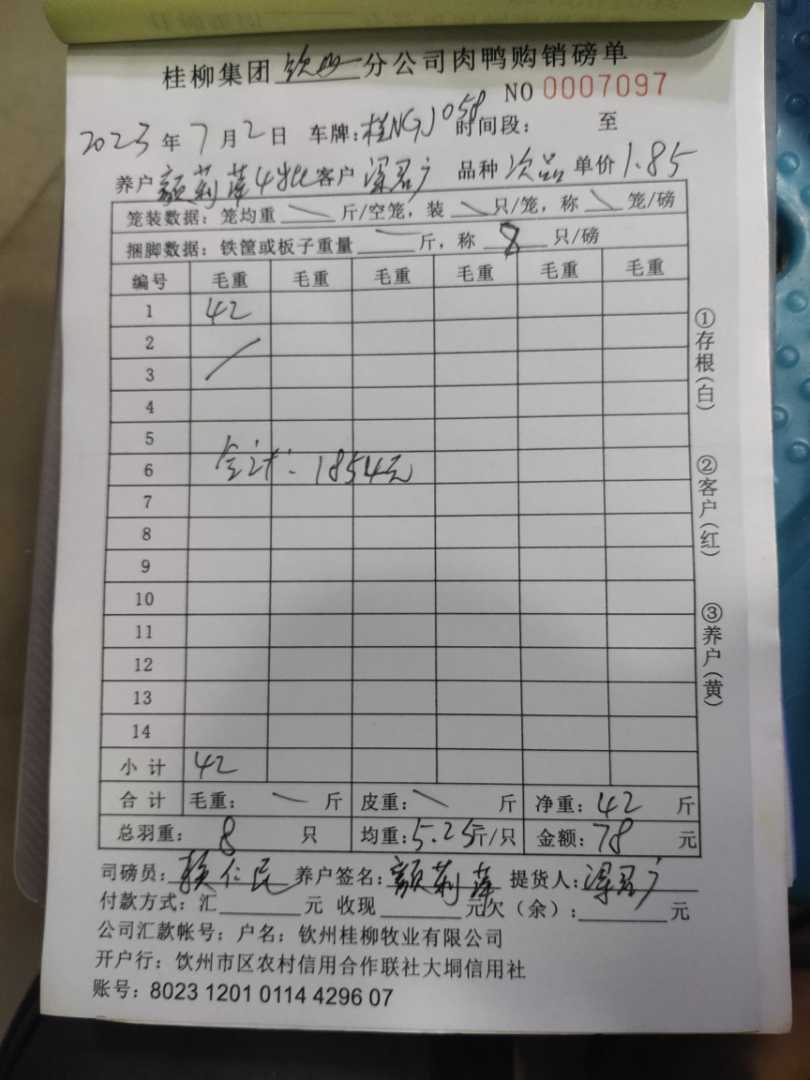 桂柳集团 钦州 分公司肉鸭购销磅单
NO 0007097
2023 年 7 月 2 日 车牌:桂NGJ058 时间段: 至
养户 颜莉萍4批 客户 梁君广 品种 次品 单价 1.85
笼装数据: 笼均重 斤/空笼, 装 只/笼, 称 笼/磅
捆脚数据: 铁筐或板子重量 斤, 称 8 只/磅
编号 毛重 毛重 毛重 毛重 毛重 毛重
1 42
2
3
4
5
6 合计: 1854元
7
8
9
10
11
12
13
14
小计 42
合计 毛重: 斤 皮重: 斤 净重: 42 斤
总羽重: 8 只 均重: 5.25 斤/只 金额: 78 元
司磅员: 赖仁民 养户签名: 颜莉萍 提货人: 梁君广
付款方式: 汇 元 收现 元欠(余): 元
公司汇款帐号: 户名: 钦州桂柳牧业有限公司
开户行: 钦州市区农村信用合作联社大垌信用社
账号: 8023 1201 0114 4296 07
①存根(白)
②客户(红)
③养户(黄)